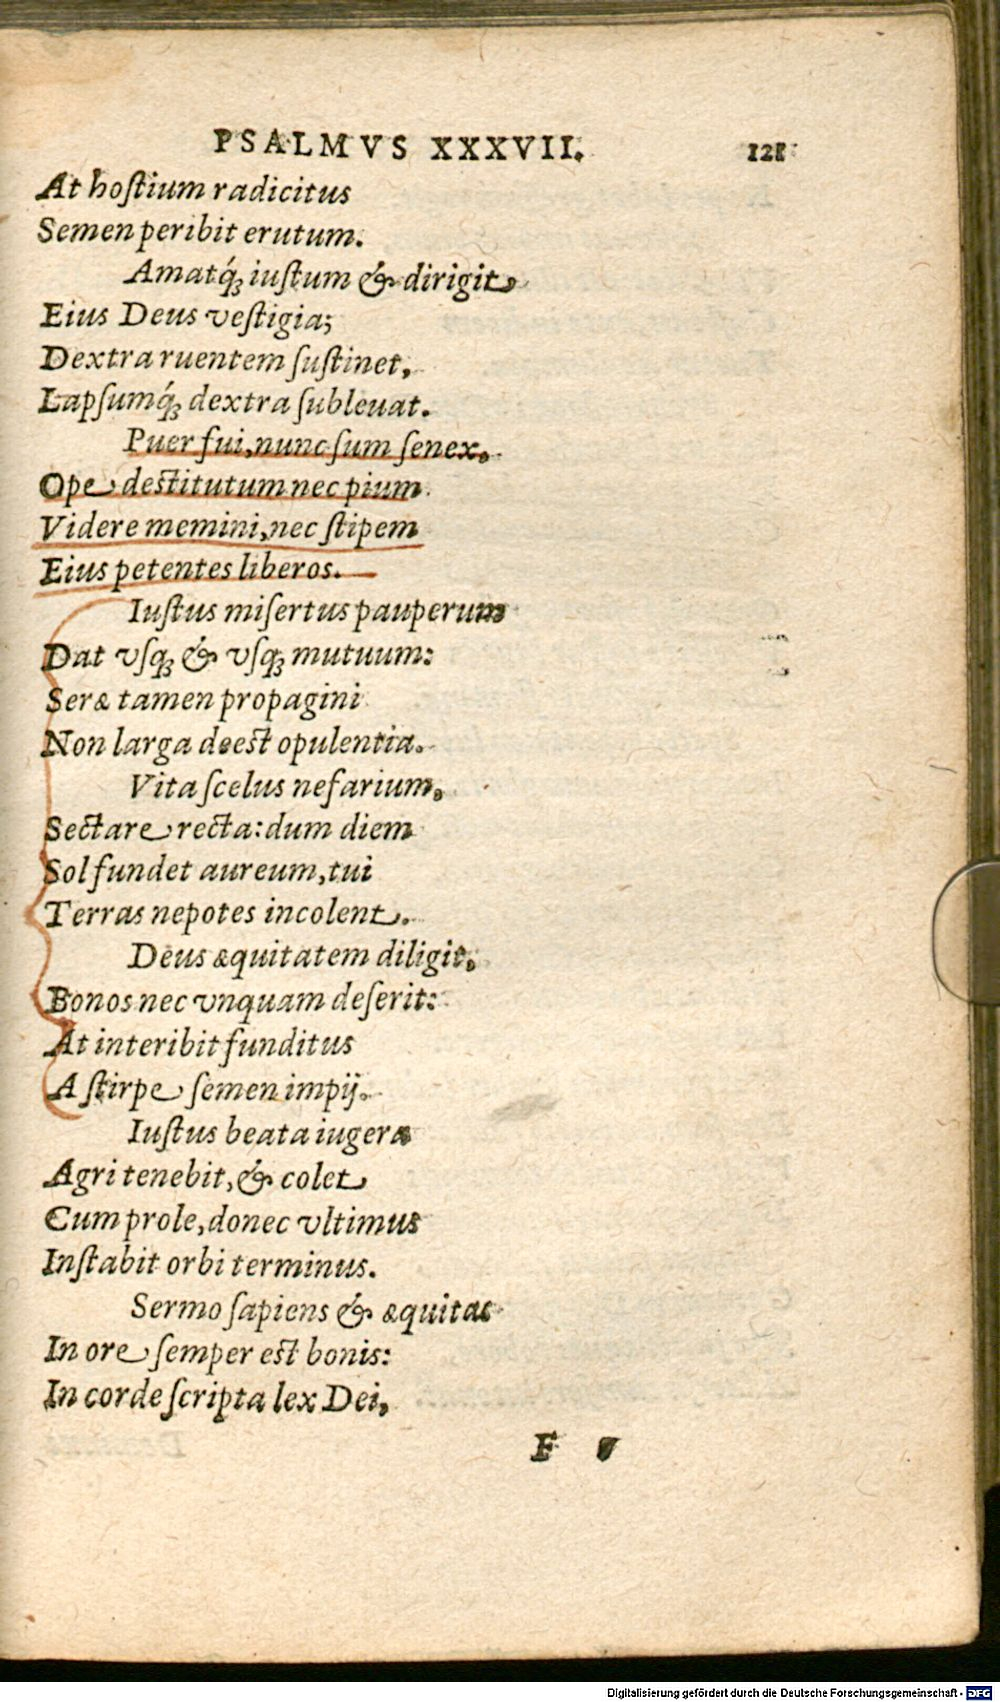 PSALMVS XXXVII. 121
At hoſtium radicitus
Semen peribit erutum.
Amatq́; iuſtum & dirigit
Eius Deus veſtigia;
Dextra ruentem ſuſtinet,
Lapſumq́; dextra ſubleuat.
Puer fui, nunc ſum ſenex,
Ope deſtitutum nec pium
Videre memini, nec ſtipem
Eius petentes liberos.
Iuſtus miſertus pauperum
Dat vſq; & vſq; mutuum:
Seræ tamen propagini
Non larga deeſt opulentia.
Vita ſcelus nefarium,
Sectare recta: dum diem
Sol fundet aureum, tui
Terras nepotes incolent.
Deus æquitatem diligit,
Bonos nec vnquam deſerit:
At interibit funditus
A ſtirpe ſemen impij.
Iuſtus beata iugera
Agri tenebit, & colet
Cum prole, donec vltimus
Inſtabit orbi terminus.
Sermo ſapiens & æquitas
In ore ſemper eſt bonis:
In corde ſcripta lex Dei,
F v
Digitalisierung gefördert durch die Deutsche Forschungsgemeinschaft - DFG